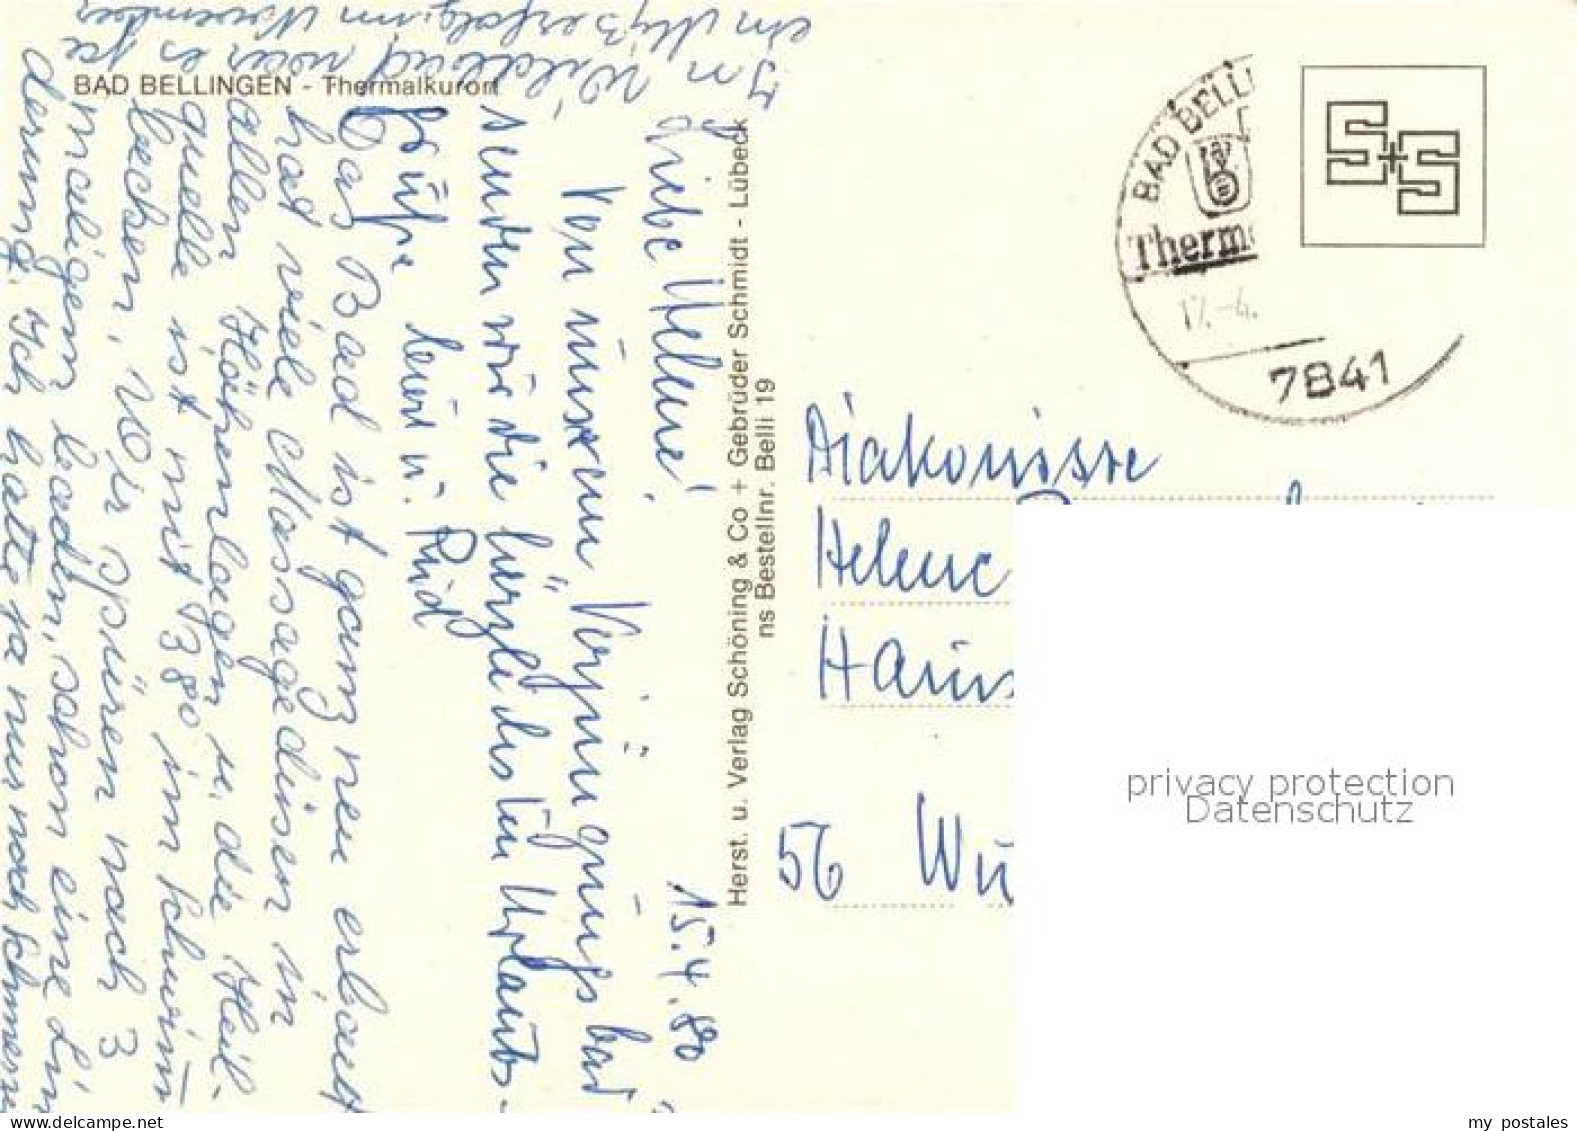 BAD BELLINGEN - Thermalkurort
15.4.80
Liebe Helene!
Von unserem Verjüngungsbad
senden wir die herzlichsten Urlaubs-
Grüße
u. Rud
Das Bad ist ganz neu erbaut
hat viele Massagedüsen in
allen Höhenlagen u. die Heil-
quelle ist mit 38° im Schwimm
becken. Wir spüren nach 3
maligem baden, schon eine Lin
derung. Ich hatte ja nur noch Schmerzen
In Wildbad war es ja
ein Mißerfolg im November
Herst. u. Verlag Schöning & Co + Gebrüder Schmidt - Lübeck
ns Bestellnr. Belli 19
BAD BELLI
Therm
17.-4.
7841
S+S
Diakonisse
Helene
Haus
56 Wu
privacy protection
Datenschutz
my postales